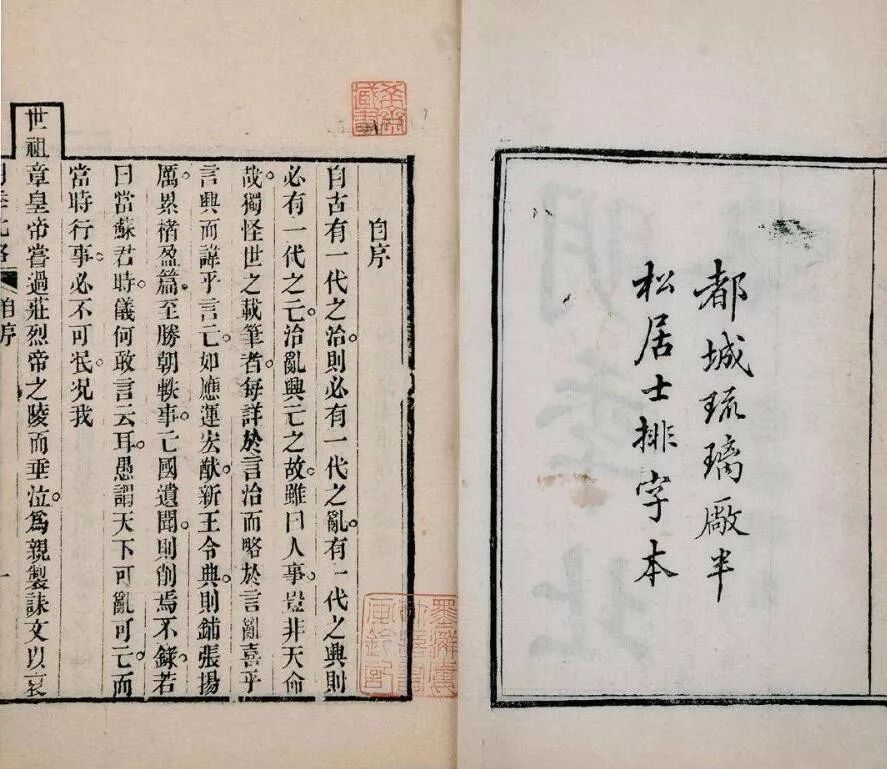 都城琉璃廠半
松居士排字本
自序
自古有一代之治。則必有一代之亂。有一代之興則
必有一代之亡。治亂興亡之故。雖曰人事。豈非天命
哉。獨怪世之載筆者。每詳於言治而略於言亂喜乎
言興而諱乎言亡。如應運宏猷。新王令典。則鋪張揚
厲。累楮盈篇。至勝朝軼事。亡國遺聞。則削焉不錄。若
曰當蘇君時。儀何敢言云耳。愚謂天下可亂可亡。而
當時行事。必不可泯。況我
世祖章皇帝嘗過莊烈帝之陵而垂泣。爲親製誄文以哀
自序
一